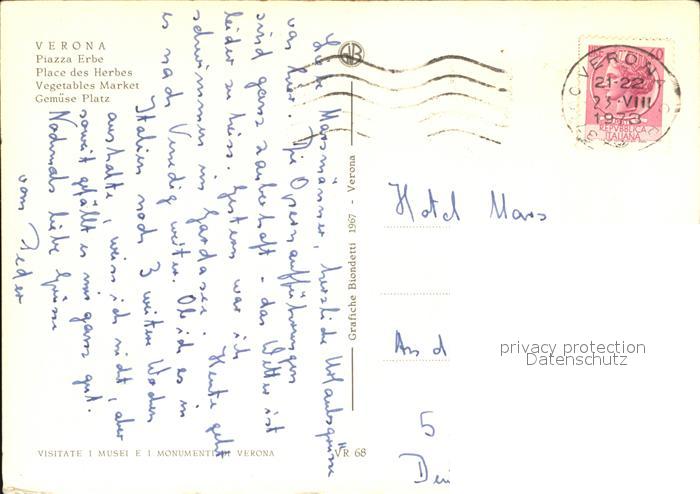 VERONA
Piazza Erbe
Place des Herbes
Vegetables Market
Gemüse Platz
Liebe Marsmänner, herzliche Urlaubsgrüsse
von hier. Die Opernaufführungen
sind ganz zauberhaft - das Wetter ist
leider zu heiss. Gestern war ich
schwimmen im Gardasee. Heute geht
es nach Venedig weiter. Ob ich es in
Italien noch 3 weitere Wochen
aushalte, weiss ich nicht, aber
soweit gefällt es mir ganz gut.
Nochmals liebe Grüsse
von Peter
VISITATE I MUSEI E I MONUMENTI DI VERONA
VR 68
Grafiche Biondetti 1967 - Verona
VERONA
21-22
23·VIII
1973
REPVBBLICA
ITALIANA
Hotel Mars
An d
5
privacy protection
Datenschutz